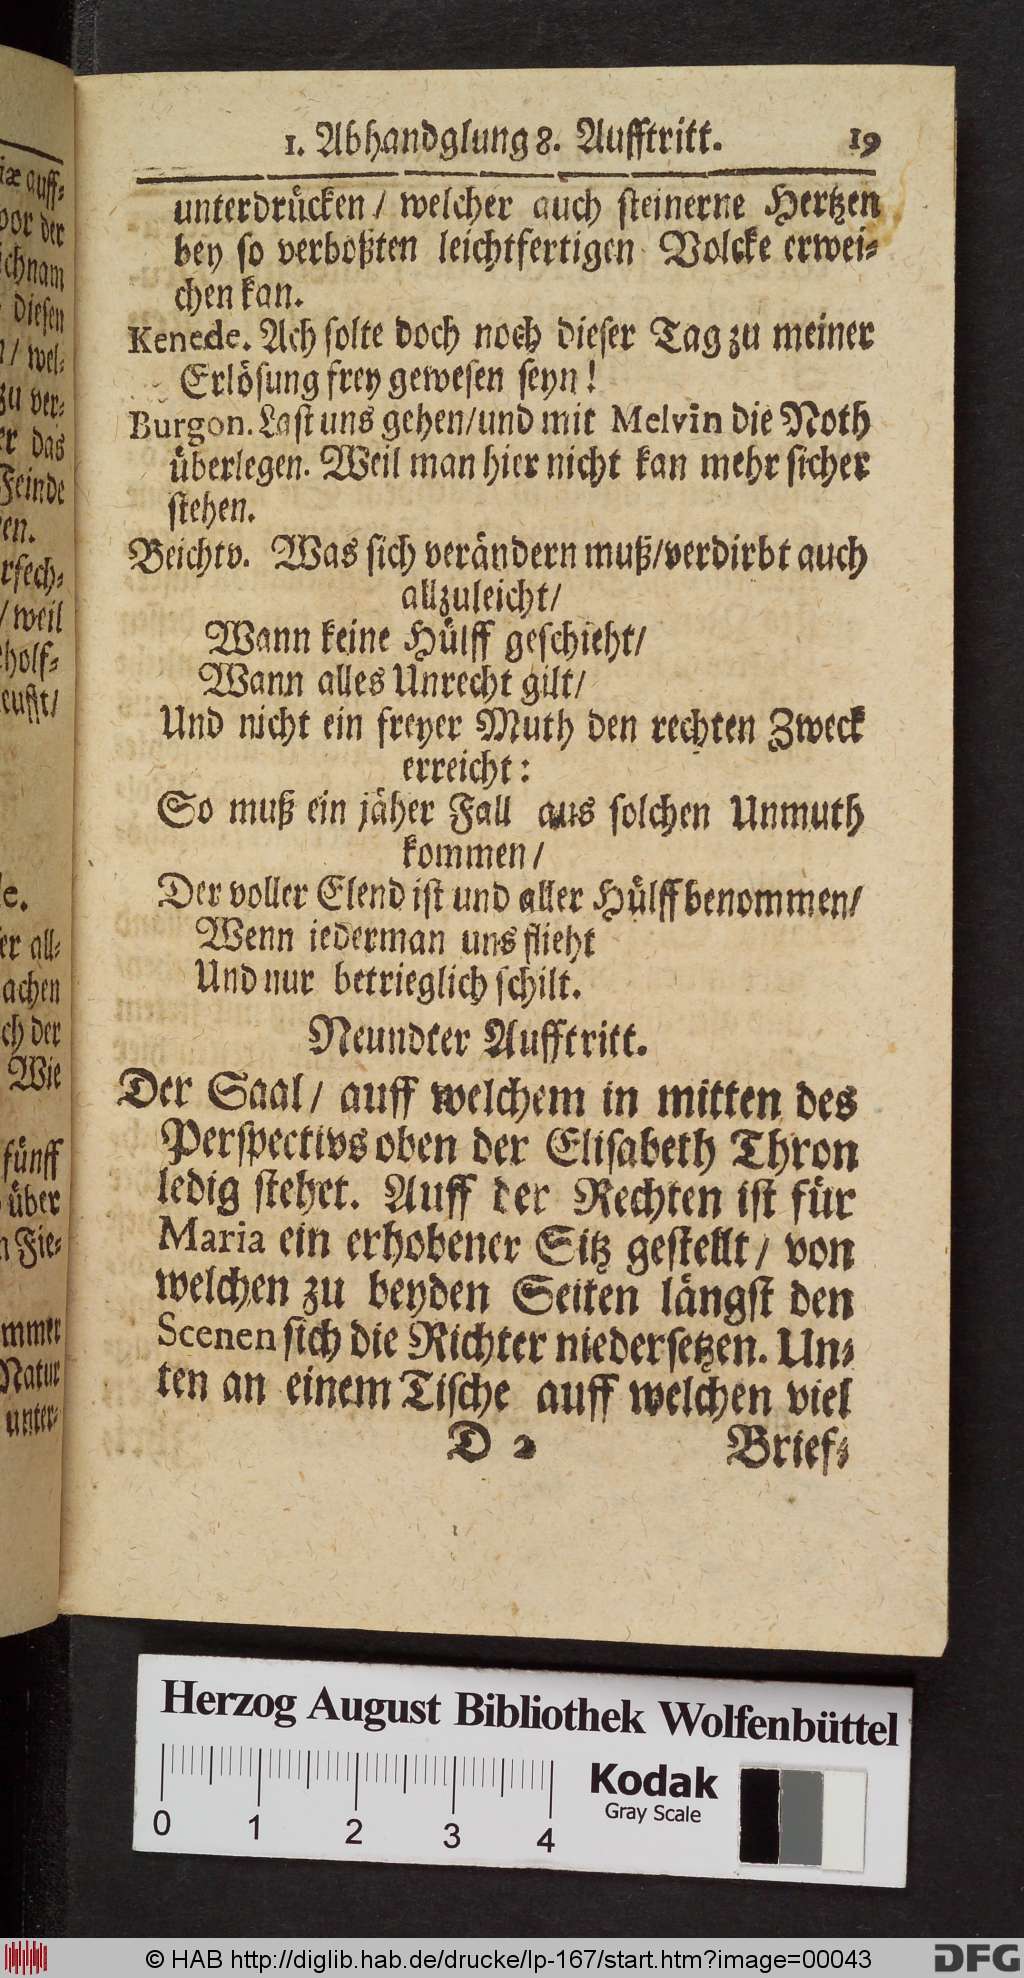 1. Abhandglung 8. Aufftritt. 19
unterdrücken / welcher auch steinerne Hertzen
bey so verboßten leichtfertigen Volcke erwei-
chen kan.
Kenede. Ach solte doch noch dieser Tag zu meiner
Erlösung frey gewesen seyn!
Burgon. Last uns gehen/und mit Melvin die Noth
überlegen. Weil man hier nicht kan mehr sicher
stehen.
Beichtv. Was sich verändern muß/verdirbt auch
allzuleicht/
Wann keine Hülff geschieht/
Wann alles Unrecht gilt/
Und nicht ein freyer Muth den rechten Zweck
erreicht:
So muß ein jäher Fall aus solchen Unmuth
kommen/
Der voller Elend ist und aller Hülff benommen/
Wenn iederman uns flieht
Und nur betrieglich schilt.
Neundter Aufftritt.
Der Saal / auff welchem in mitten des
Perspectivs oben der Elisabeth Thron
ledig stehet. Auff der Rechten ist für
Maria ein erhobener Sitz gestellt / von
welchen zu beyden Seiten längst den
Scenen sich die Richter niedersetzen. Un-
ten an einem Tische auff welchen viel
D 2 Brief-
iæ auff-
vor der
ichnam
diesen
n/ wel-
zu ver-
er das
Feinde
en.
rfech-
/ weil
holf-
eufft/
le.
er all-
achen
ch der
Wie
fünff
über
n Fie-
mmer
Natur
unter-
Herzog August Bibliothek Wolfenbüttel
Kodak
Gray Scale
0 1 2 3 4
© HAB http://diglib.hab.de/drucke/lp-167/start.htm?image=00043
DFG